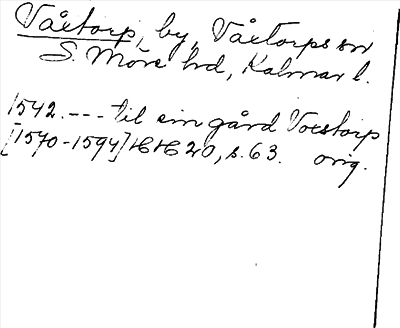 Våxtorp, by, Våxtorps sn
S. Möre hd, Kalmar l.
1542. --- til sin gård Voxtorp
[1570-1594] HH 20, s. 63. orig.